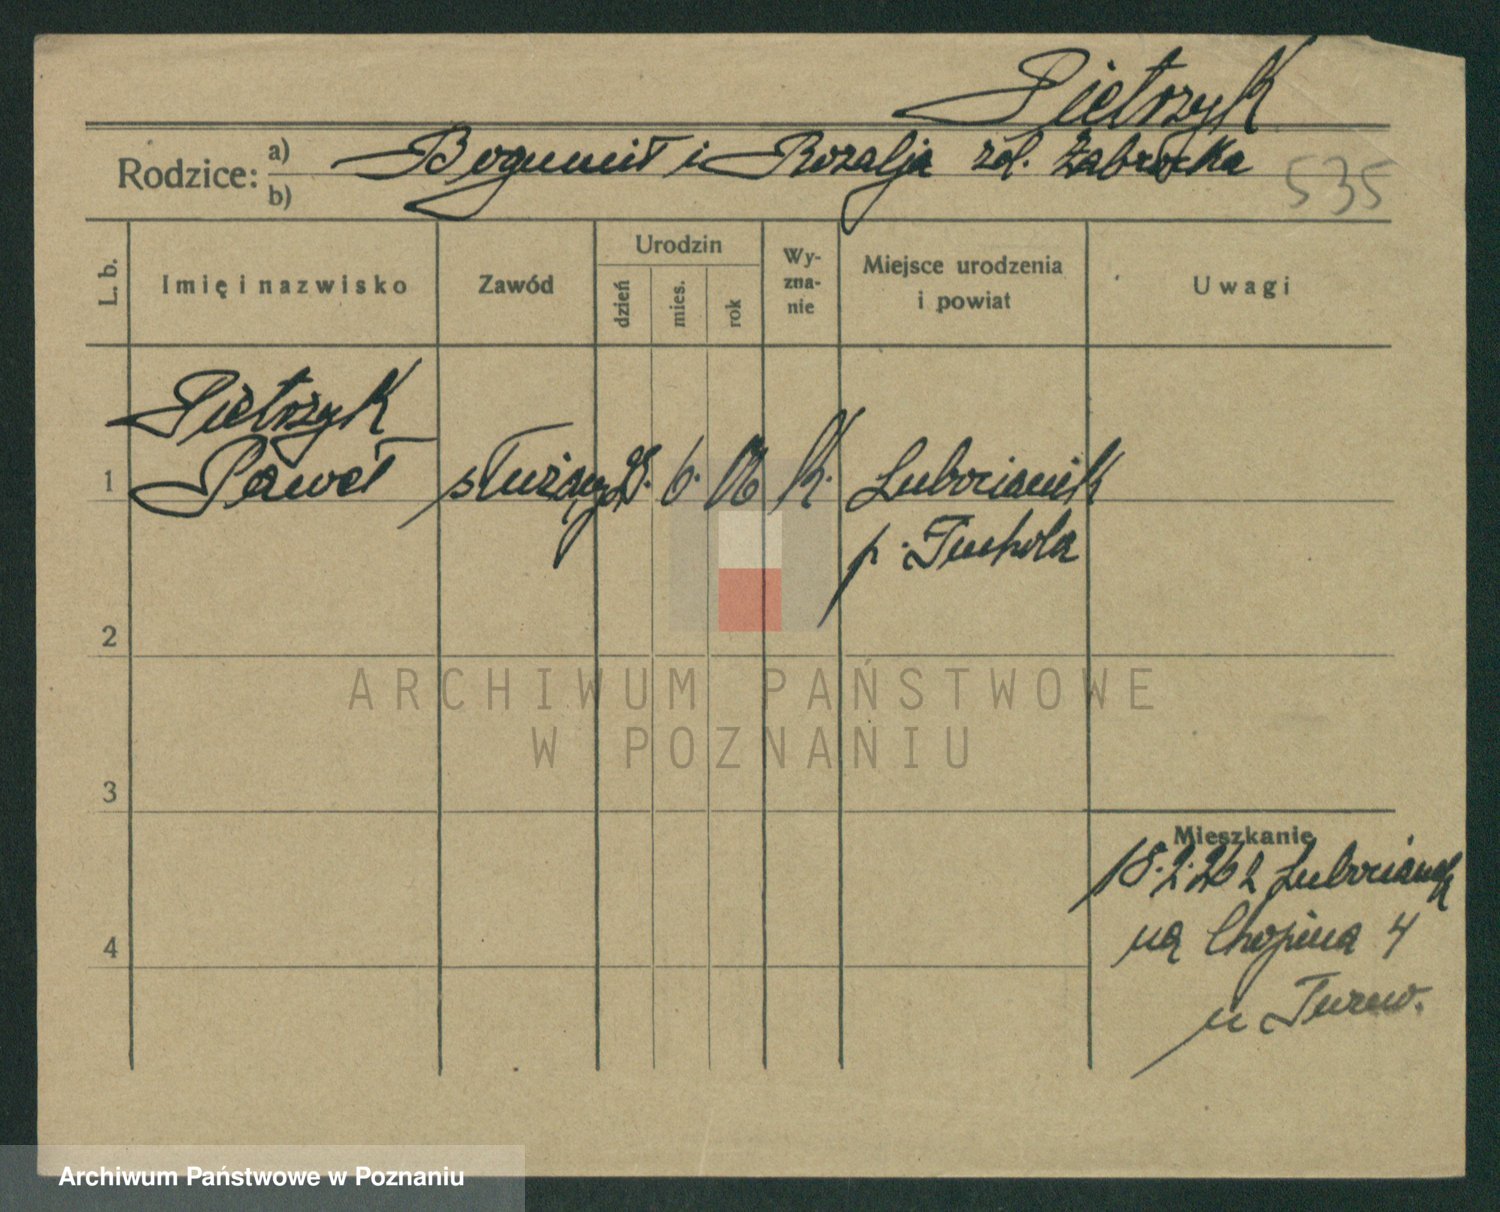 Pietrzyk
Rodzice: a) Bogumił i Rozalja zd. Zabrocka
b)
535
L. b. Imię i nazwisko Zawód Urodzin dzień mies. rok Wyznanie Miejsce urodzenia i powiat Uwagi
Pietrzyk
1 Paweł służący 6. 06 k. Lubocianik
p. Tuchola
2
ARCHIWUM PAŃSTWOWE
W POZNANIU
3
Mieszkanie
18.2.26 z
4 na Chopina 4
u
Archiwum Państwowe w Poznaniu